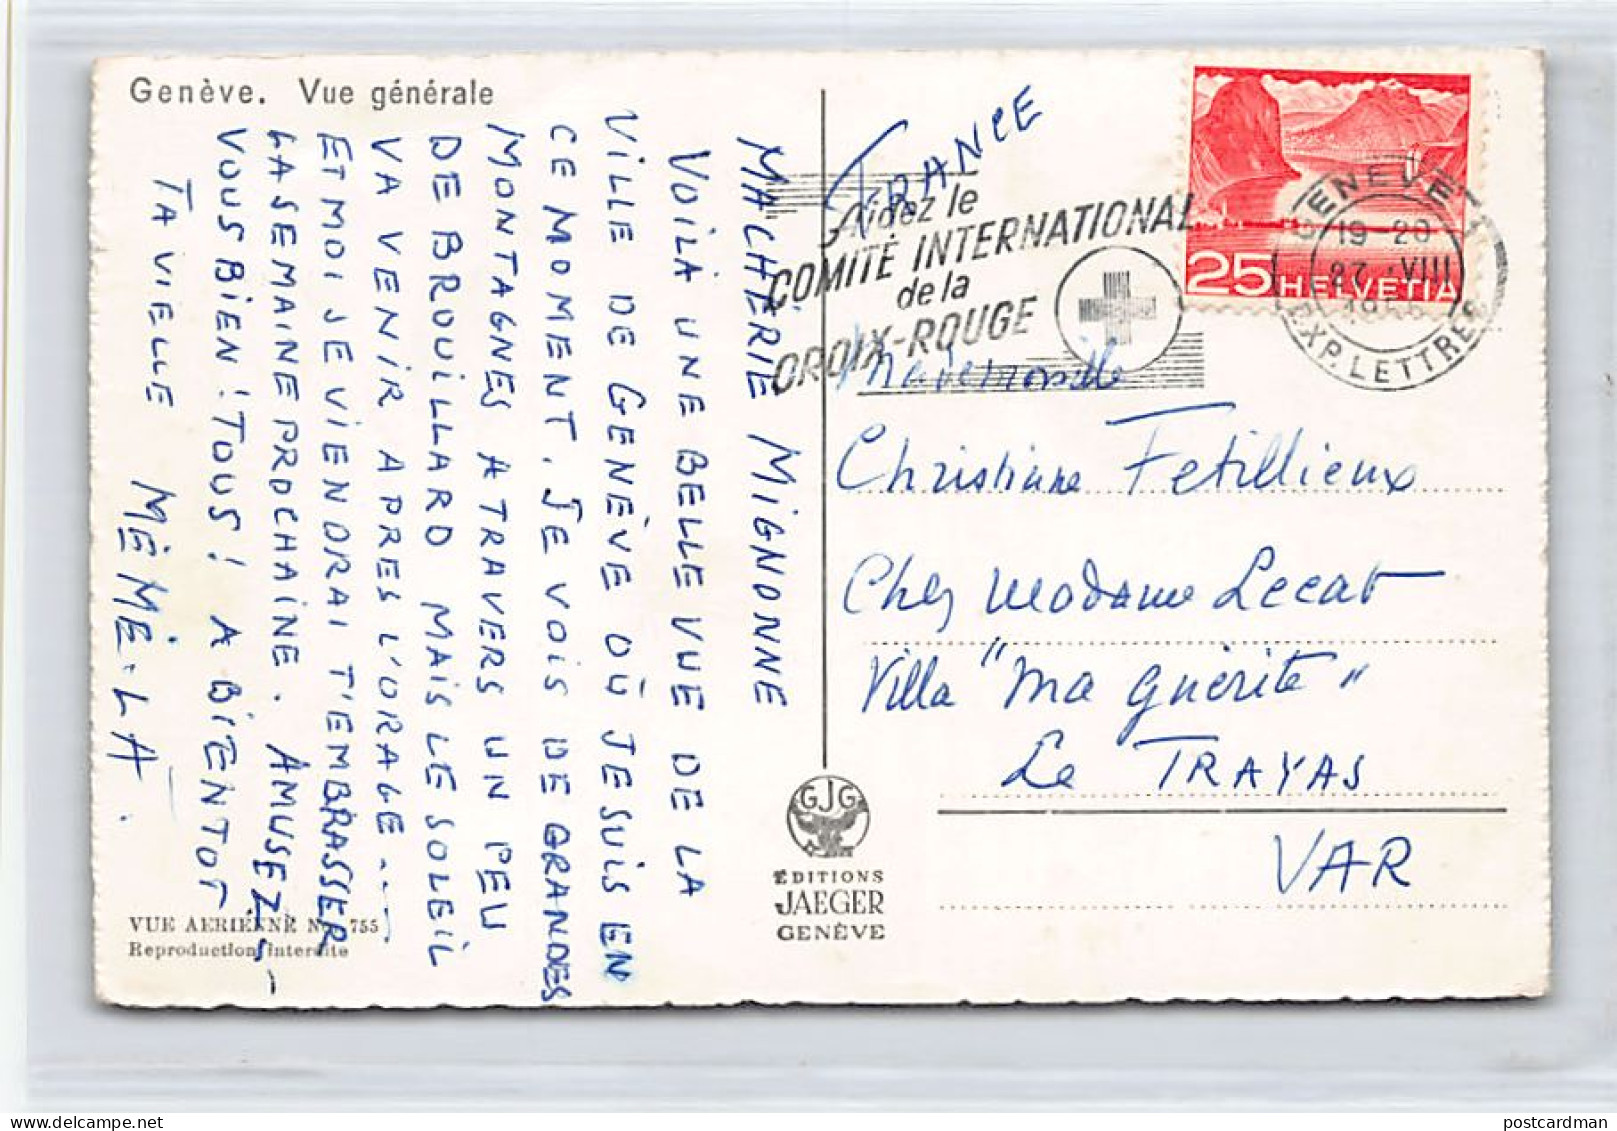 Genève. Vue générale
MA CHÉRIE MIGNONNE
VOILÀ UNE BELLE VUE DE LA
VILLE DE GENÈVE OÙ JE SUIS EN
CE MOMENT. JE VOIS DE GRANDES
MONTAGNES A TRAVERS UN PEU
DE BROUILLARD MAIS LE SOLEIL
VA VENIR APRES L'ORAGE...
ET MOI JE VIENDRAI T'EMBRASSER
LA SEMAINE PROCHAINE. AMUSEZ-
VOUS BIEN! TOUS! A BIENTOT
TA VIELLE MÉMÉ-LÀ.
VUE AERIENNE No 755
Reproduction interdite
GJG
ÉDITIONS
JAEGER
GENÈVE
FRANCE
Aidez le
COMITÉ INTERNATIONAL
de la
CROIX-ROUGE
25 HELVETIA
GENÈVE 1
19-20
27.VIII
EXP. LETTRES
Mademoiselle
Christiane Fetillieux
Chez Madame Lecat
Villa "Ma Guérite"
Le TRAYAS
VAR
postcardman